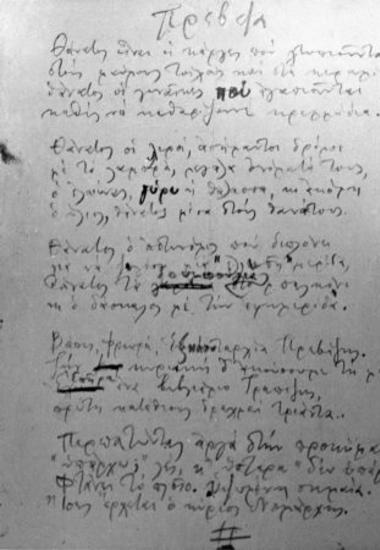 Πρέβεζα
Θάνατος εἶναι οἱ κάργες ποὺ χτυπιοῦνται
στοὺς μαύρους τοίχους καὶ στὰ κεραμί
θάνατος οἱ γυναῖκες ποὺ ἀγαπιοῦνται
καθὼς νὰ καθαρίζουνε κρεμμύδια.
Θάνατος οἱ λεροί, ἀσήμαντοι δρόμοι
μὲ τὰ λαμπρά, μεγάλα ὀνόματά τους,
ὁ ἐλαιώνας, γύρω ἡ θάλασσα, κι ἀκόμη
ὁ ἥλιος, θάνατος μέσα στοὺς θανάτους.
Θάνατος ὁ ἀστυνόμος ποὺ διπλώνει
γιὰ νὰ μιὰ μερίδα,
θάνατος τὰ ζουμπούλια μπαλκόνι
κι ὁ δάσκαλος μὲ τὴν ἐφημερίδα.
Βάσις, Φρουρά, Ἑξηκονταρχία Πρεβέζης.
Τὴν Κυριακὴ θ' ἀκούσουμε τὴ μ
Ἐπῆρα ἕνα βιβλιάριο Τραπέζης,
πρώτη κατάθεσις δραχμαὶ τριάντα.
Περπατώντας ἀργὰ στὴν προκυμα
"ὑπάρχω;" λές, κ' ὕστερα "δὲν ὑπάρ
Φτάνει τὸ πλοῖο. Ὑψωμένη σημαία.
Ἴσως ἔρχεται ὁ κύριος Νομάρχης.